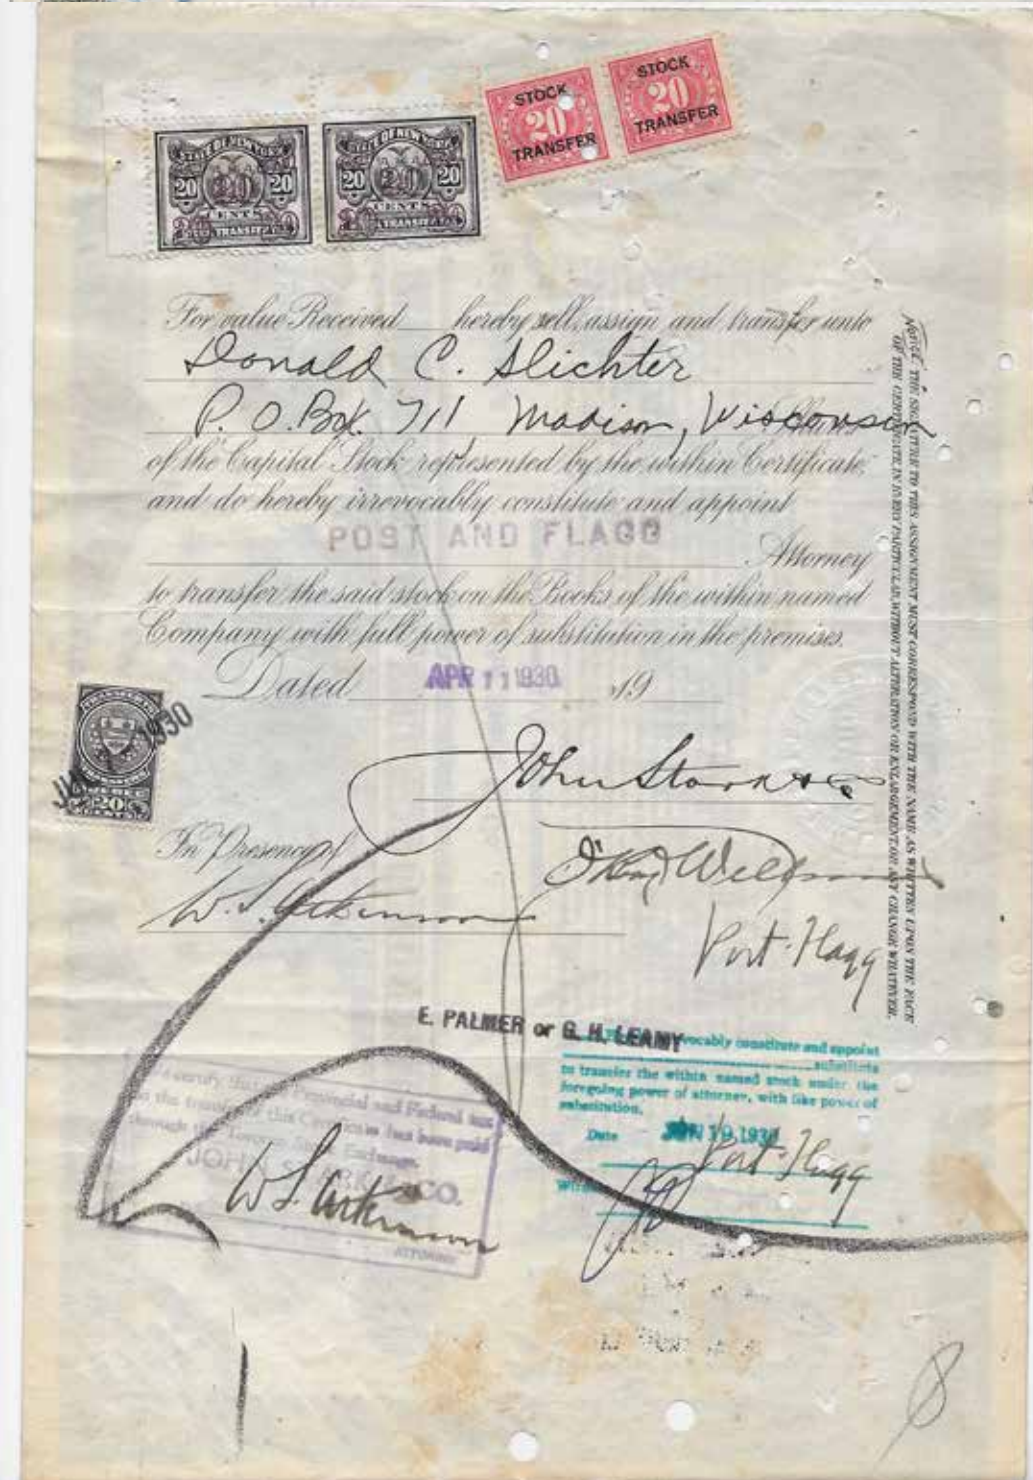 STOCK
20
TRANSFER
STOCK
20
TRANSFER
STATE OF NEW YORK
20 20 20
CENTS
STATE OF NEW YORK
20 20 20
CENTS
For value Received hereby sell, assign and transfer unto
Donald C. Slichter
P. O. Box 711 Madison, Wisconsin
of the Capital Stock represented by the within Certificate,
and do hereby irrevocably constitute and appoint
POST AND FLAGG
Attorney
to transfer the said stock on the Books of the within named
Company with full power of substitution in the premises.
Dated APR 11 1930 19
1930
20
John Stark & Co
In Presence of
W. S. Atkinson
Post & Flagg
NOTICE. THE SIGNATURE TO THIS ASSIGNMENT MUST CORRESPOND WITH THE NAME AS WRITTEN UPON THE FACE
OF THE CERTIFICATE IN EVERY PARTICULAR WITHOUT ALTERATION OR ENLARGEMENT OR ANY CHANGE WHATEVER.
E. PALMER or G. H. LEAMY
vocably constitute and appoint
substitute
to transfer the within named stock under the
foregoing power of attorney, with like power of
substitution.
Date JUN 19 1930
Post & Flagg
certify that Provincial and Federal tax
on the transfer of this Certificate has been paid
through the Toronto Stock Exchange.
JOHN STARK & CO.
W. S. Atkinson
ATTORNEY
8